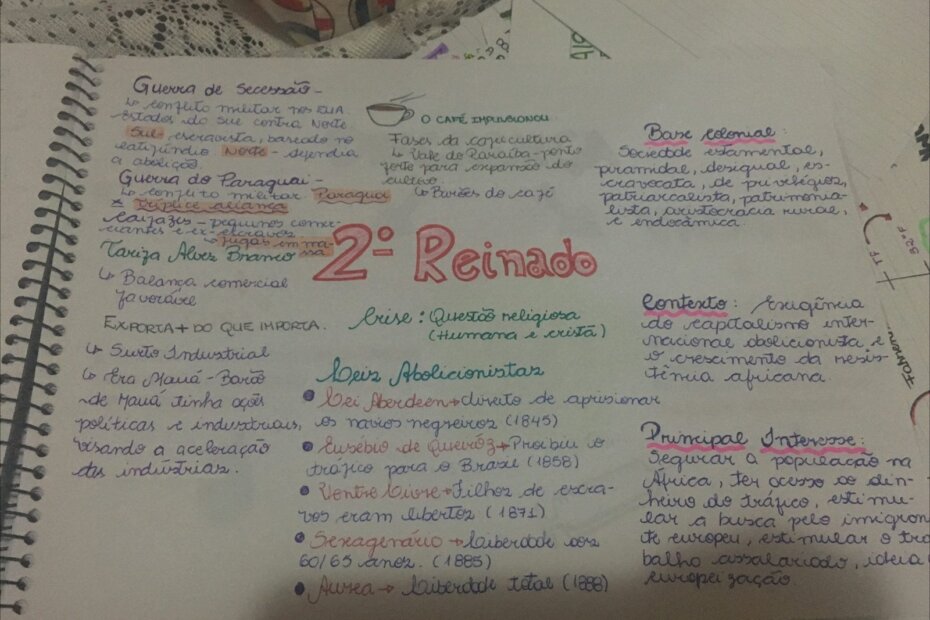 Guerra de Secessão -
↳ conflito militar nos EUA
Estados do sul contra Norte.
Sul - escravista, baseado no
latifúndio Norte - defendia
a abolição.
Guerra do Paraguai -
↳ conflito militar Paraguai
x Tríplice aliança
- pequenos comer-
ciantes e ex-escravos.
↳ fugas em ma
ssa
Tariza Alves Branco
↳ Balança comercial
favorável
EXPORTA + DO QUE IMPORTA.
↳ Surto Industrial
↳ Era Mauá - Barão
de Mauá tinha ações
políticas e industriais,
visando a aceleração
das indústrias.
O CAFÉ IMPULSIONOU
Fases da cafeicultura
↳ Vale do Paraíba - ponto
forte para expansão do
cultivo.
↳ Barões do café
2º Reinado
Crise: Questão religiosa
(Humana e cristã)
Leis Abolicionistas
• Lei Aberdeen → direito de aprisionar
os navios negreiros (1845)
• Eusébio de Queiróz → Proibiu o
tráfico para o Brasil (1858)
• Ventre Livre → Filhos de escra-
vos eram libertos (1871)
• Sexagenário → Liberdade aos
60/65 anos. (1885)
• Aurea → Liberdade total (1888)
Base colonial:
Sociedade estamental,
piramidal, desigual, es-
cravocata, de privilégios,
patriarcalista, patrimonia-
lista, aristocracia rural,
e endogâmica.
Contexto: Exigência
do capitalismo inter-
nacional abolicionista e
o crescimento da resis
tência africana.
Principal Interesse:
Segurar a população na
África, ter acesso ao din-
heiro do tráfico, estimu-
lar a busca pelo imigran
te europeu, estimular o tra
balho assalariado, ideia
europeização.
TF
32°F